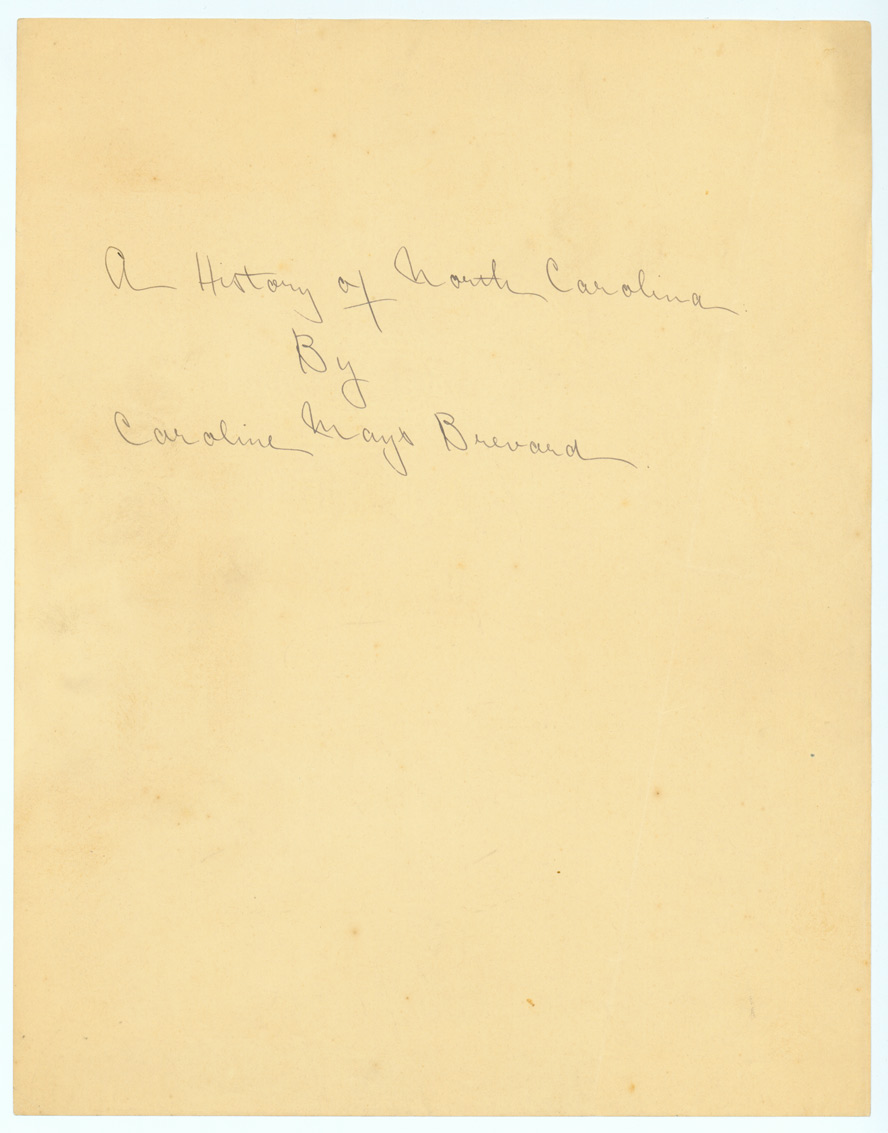 A History of North Carolina
By
Caroline Mays Brevard